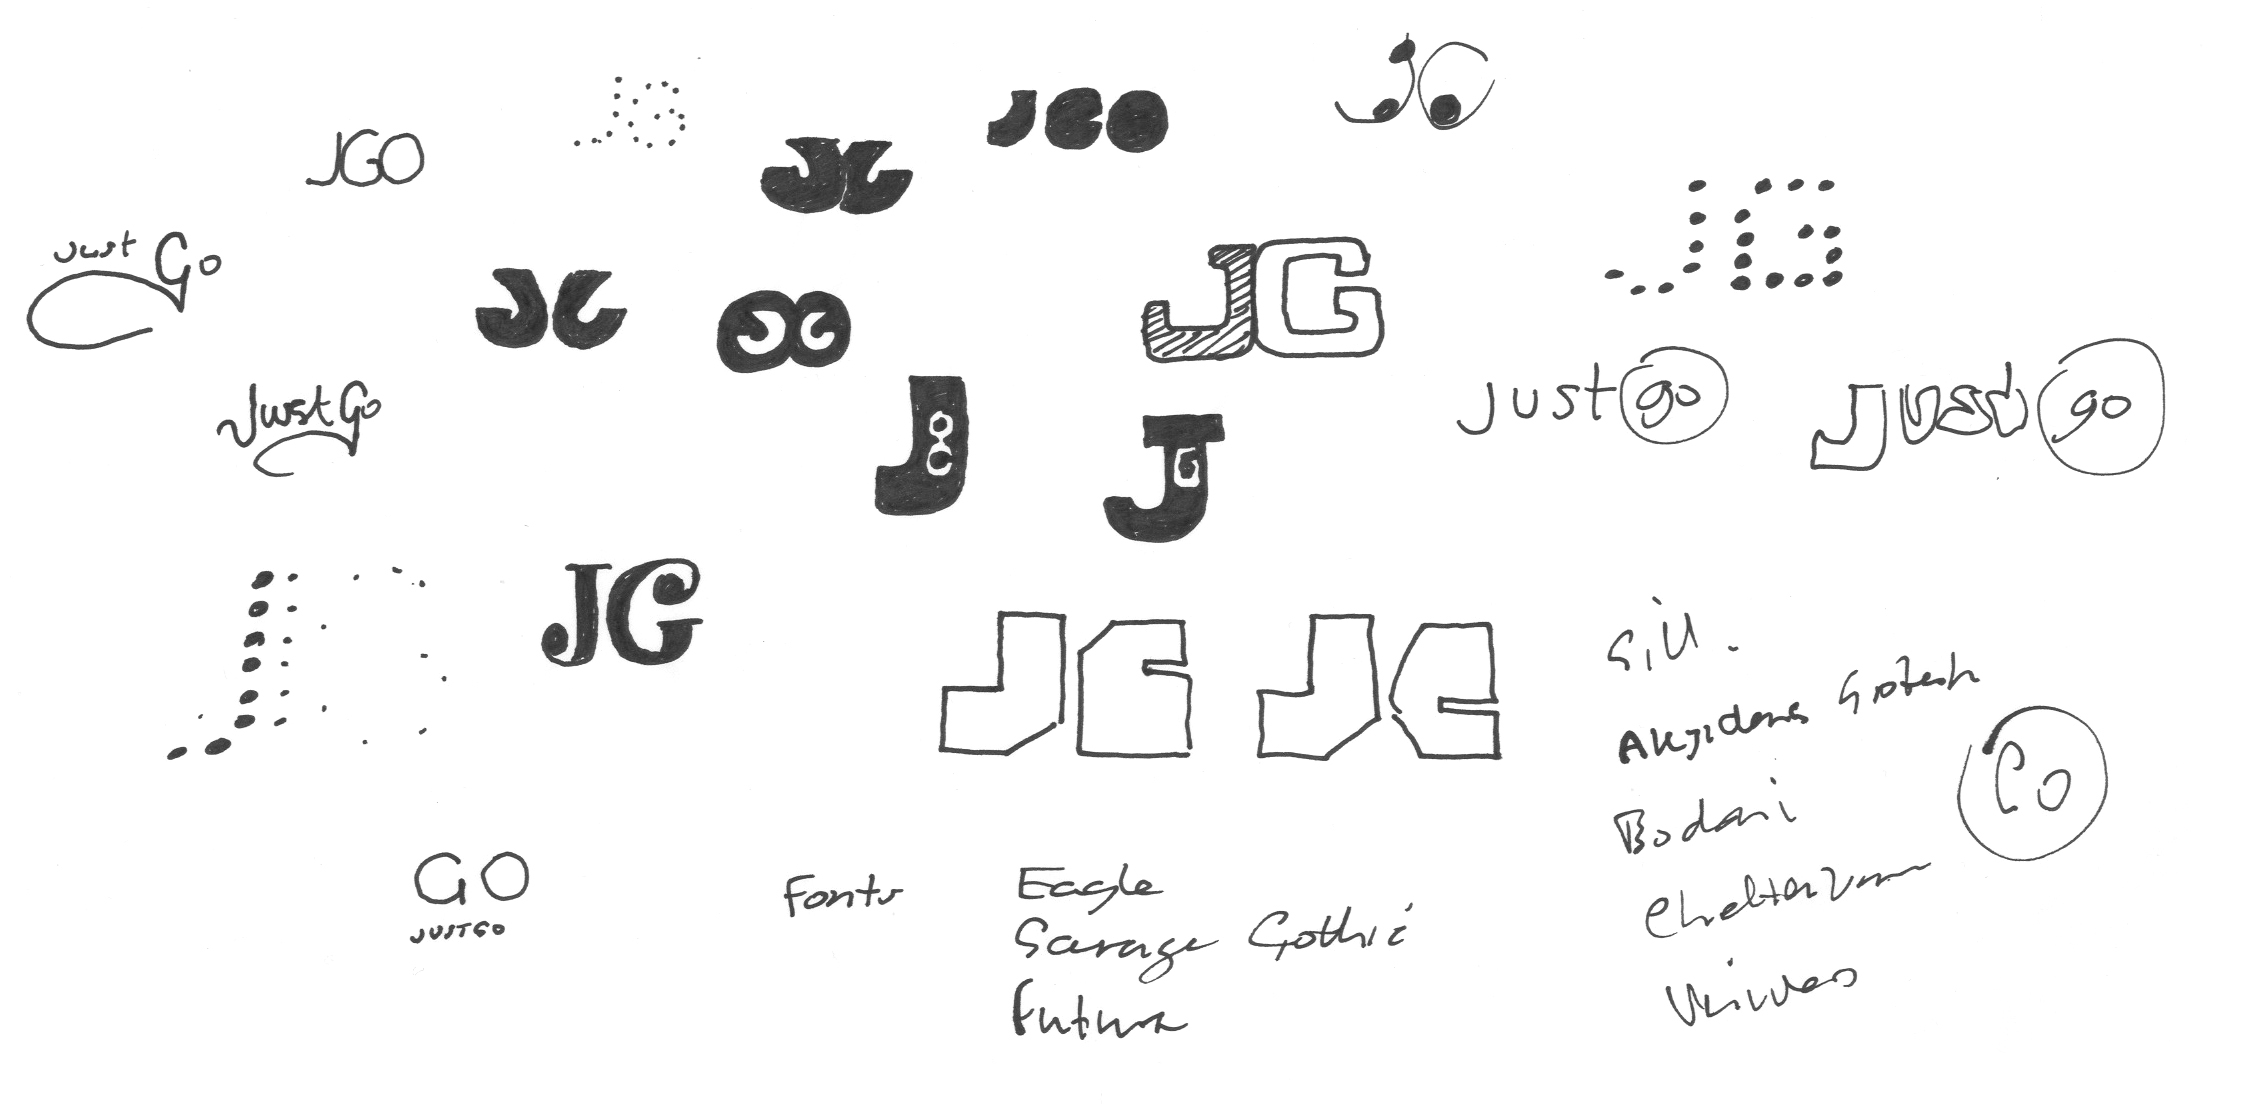 JG
JG
JGO
JGO
JG
JG
just Go
JG
JG
JG
JustGo
J
J G
just go
just go
JG
JG
JG
Gill.
Akzidens Grotesk
GO
Bodoni
Go
JUSTGO
Fonts
Eagle
Garage Gothic
Futura
Univers